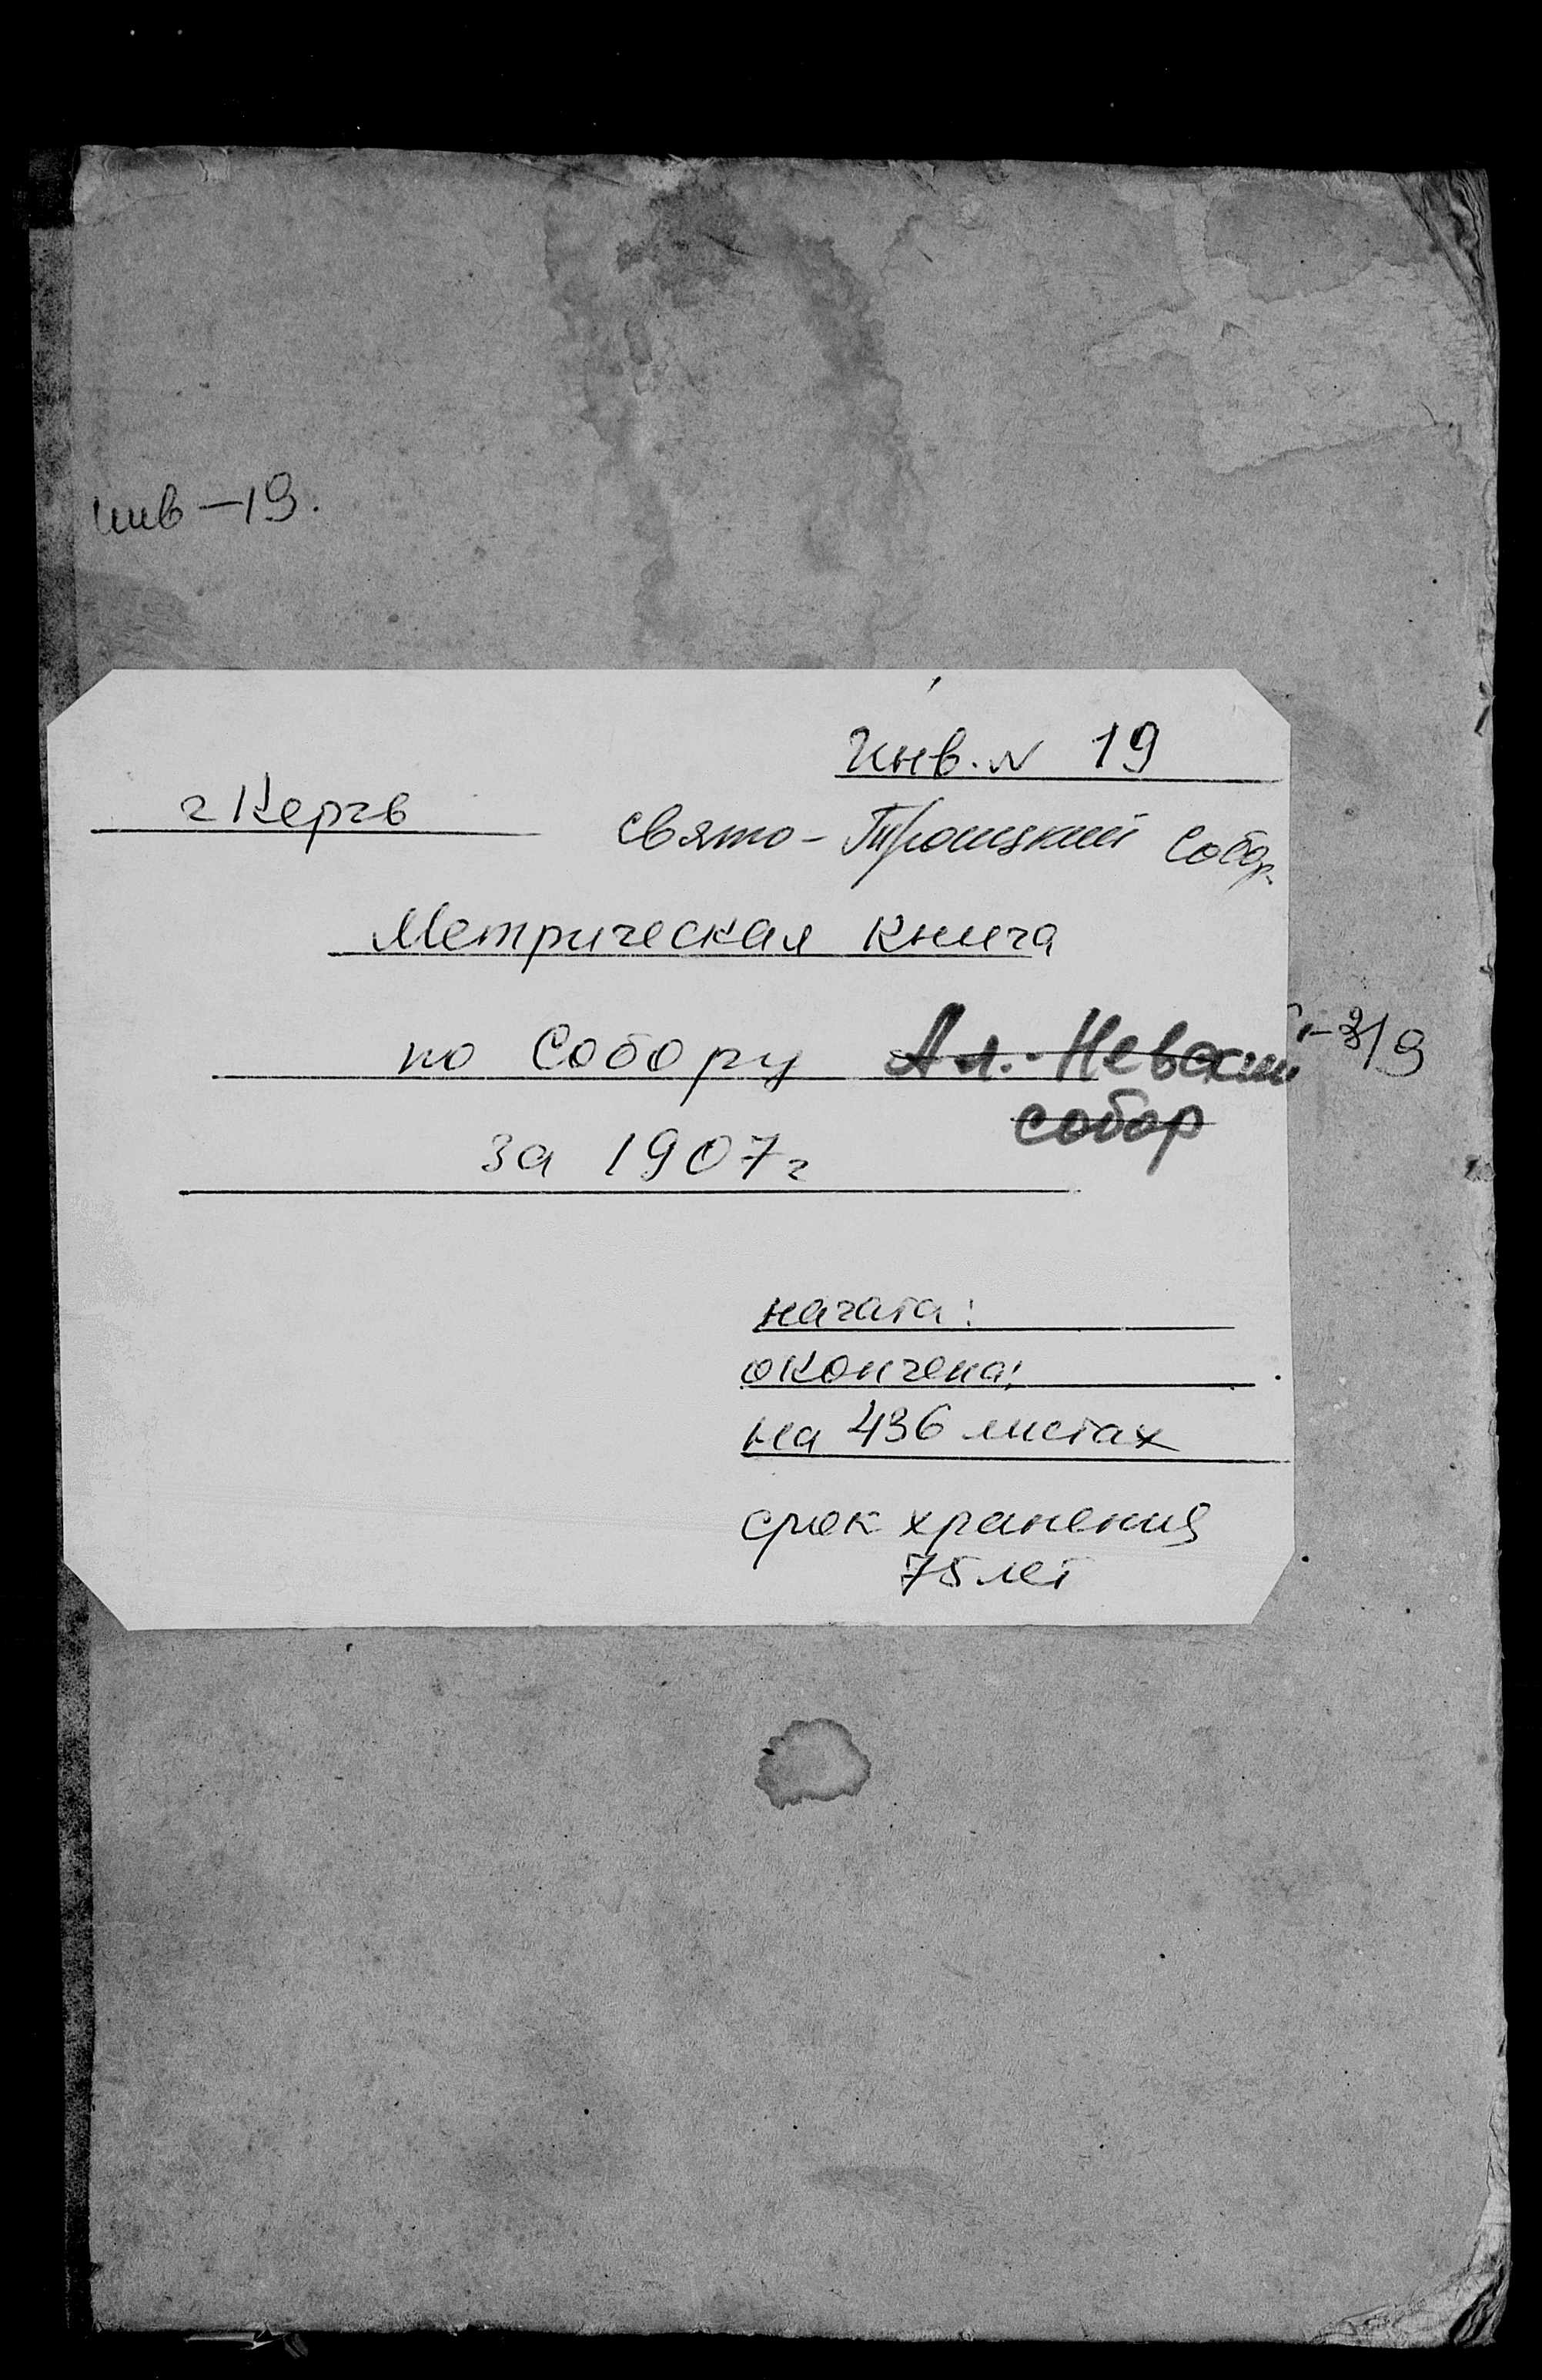 инв-19.
Инв. N 19
г Керчь
Свято-Троицкий Собор
Метрическая книга
по Собору Ал.-Невский
собор
за 1907г
начата:
окончена:
на 436 листах
срок хранения
75 лет